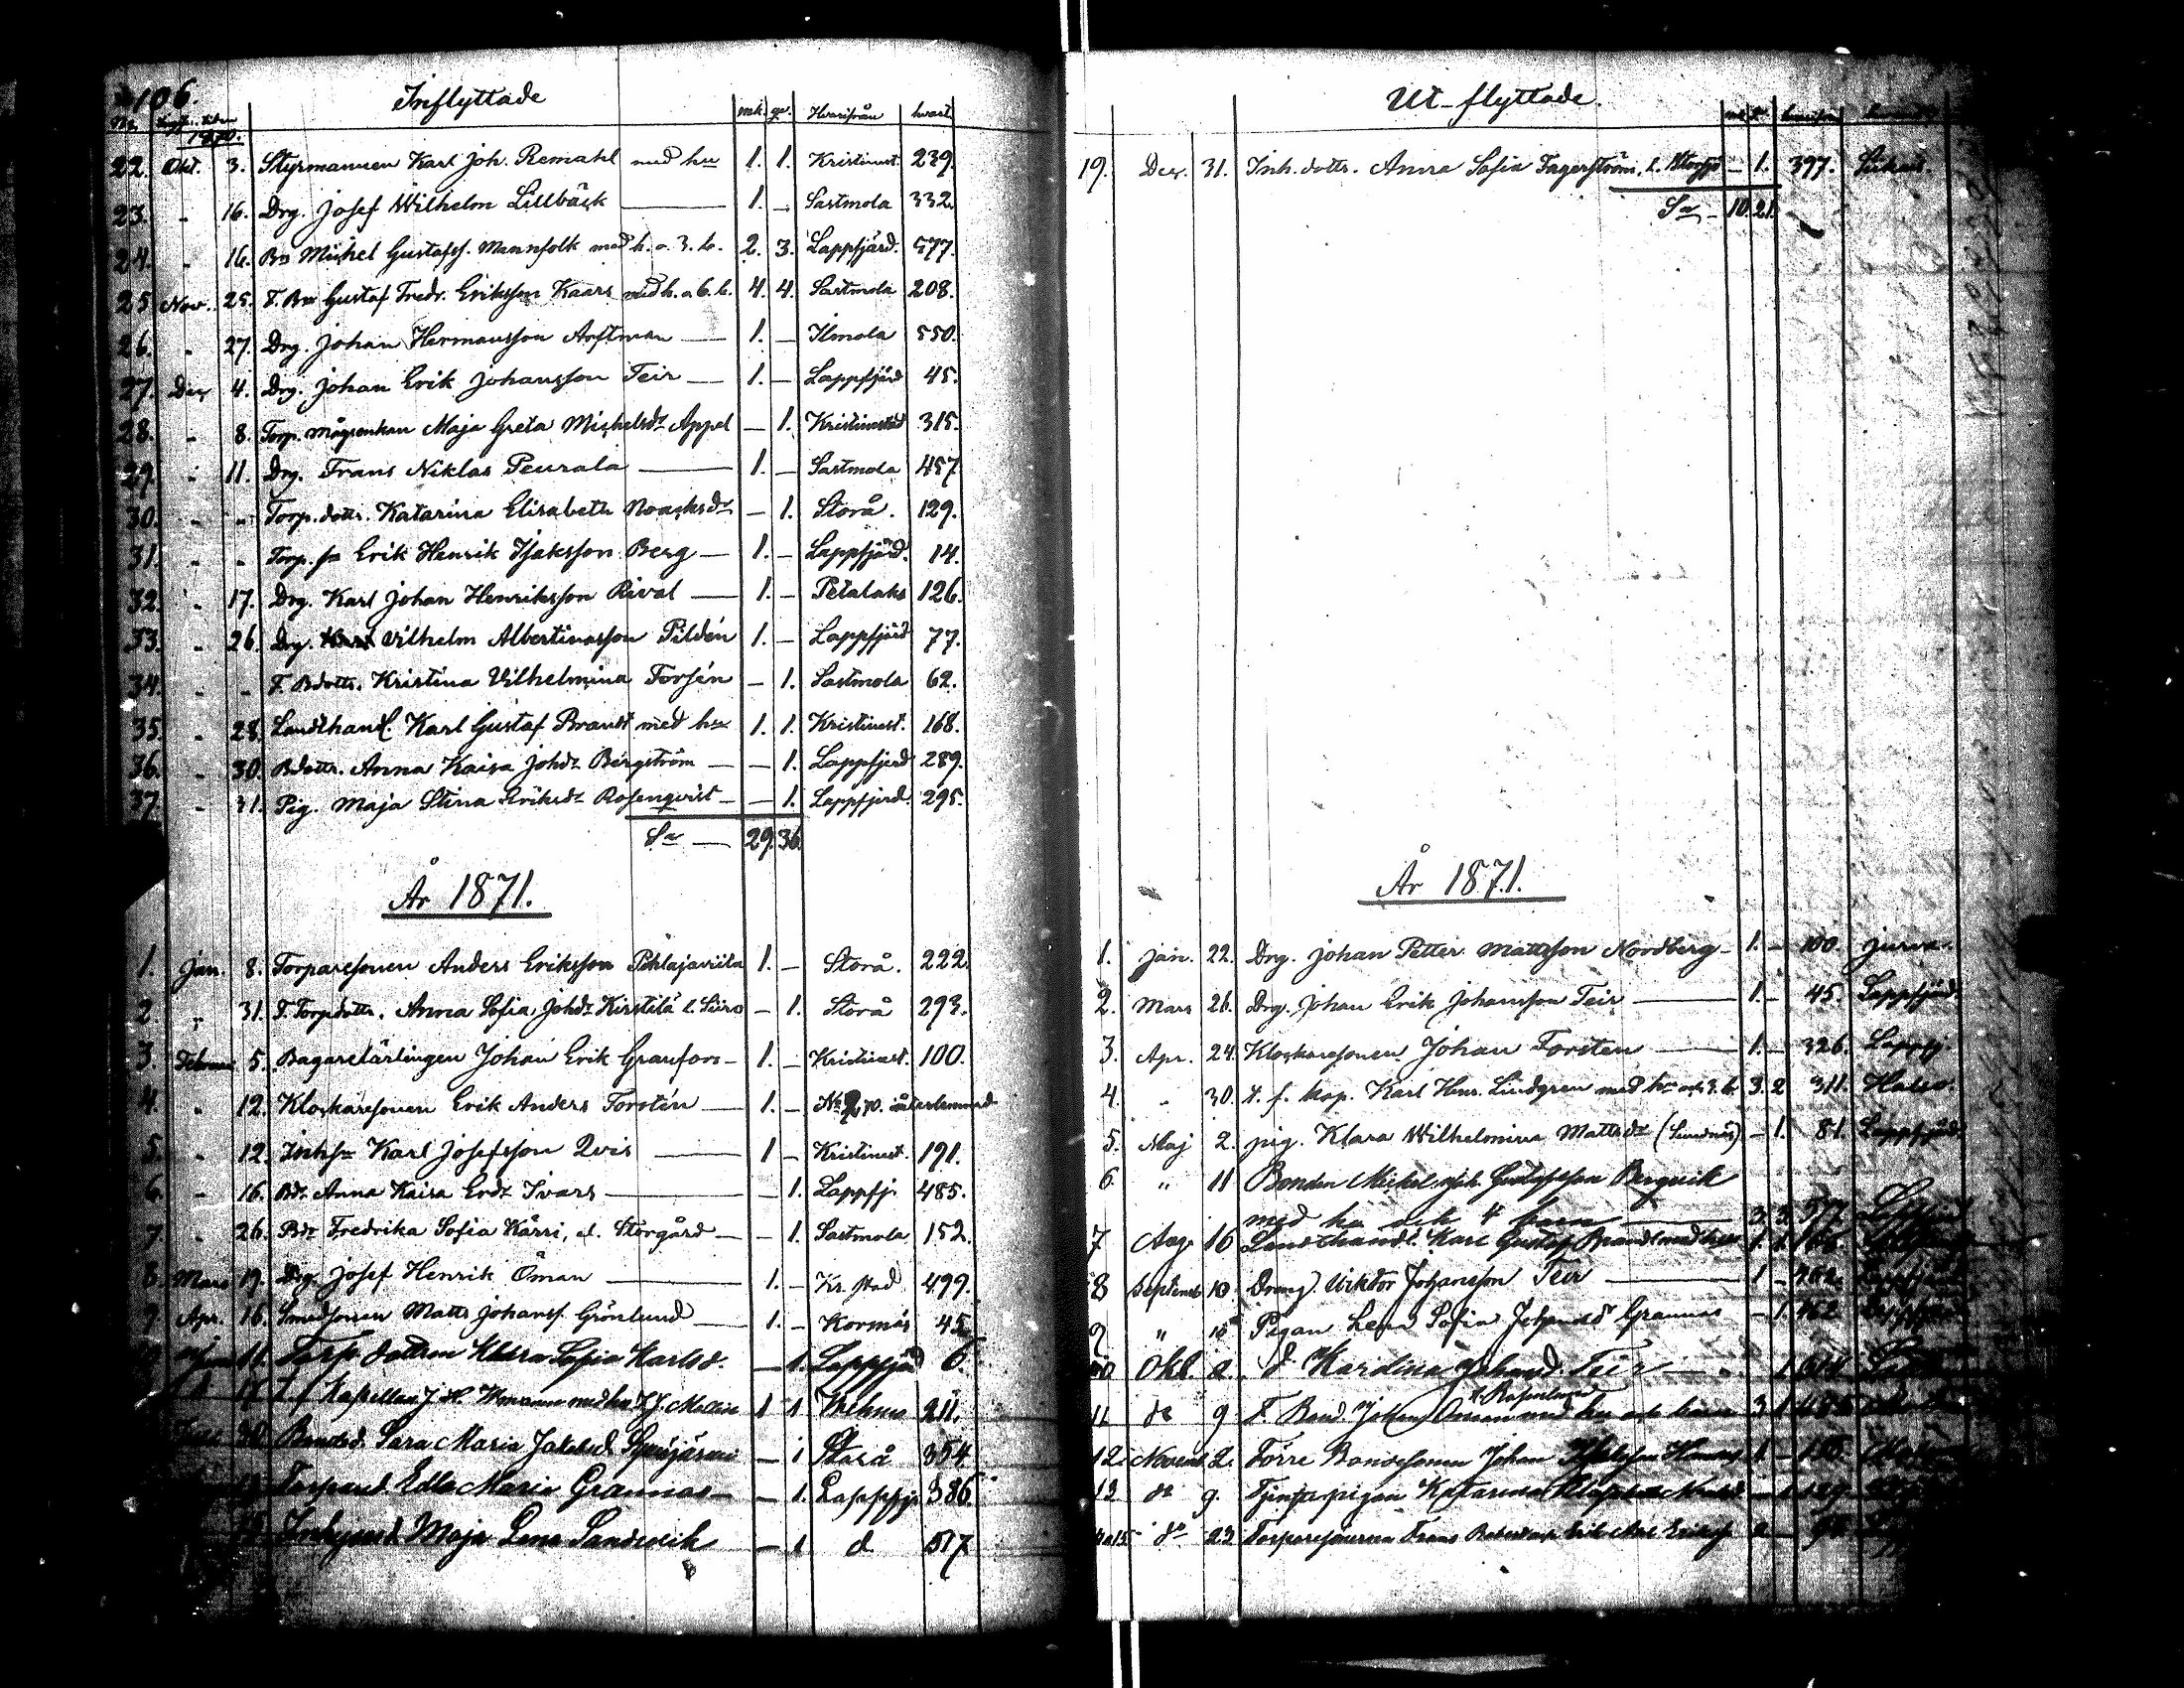 106.
Inflyttade
mk. qv. Hvarifrån hvart
1870.
22. Okt. 3. Styrmannen Karl Joh. Remahl med hu 1. 1. Kristinest. 239.
23. " 16. Drg. Josef Wilhelm Lillbäck — 1. — Sastmola 332.
24. " 16. Bn Michel Gustafss. Mannfolk med h. o. 3. b. 2. 3. Lappfjärd. 577.
25 Nov. 25. F. Bn Gustaf Fredr. Eriksson Kaars med h. o. 6. b. 4. 4. Sastmola 208.
26. " 27. Drg. Johan Hermansson — 1. — Ilmola 550.
27. Dec 4. Drg. Johan Erik Johansson Teir — 1. — Lappfjärd 45.
28. " 8. Torp. mågenkan Maja Greta Michelsdr Appel — 1. Kristinestad 315.
29. " 11. Drg. Frans Niklas Peurala — 1. — Sastmola 457
30. " " Torp. dottr. Katarina Elisabeth Noachsdr — 1. Storå. 129.
31. " " Torp. sn Erik Henrik Isaksson Berg — 1. — Lappfjärd. 14.
32. " 17. Drg. Karl Johan Henriksson Rival — 1. — Petalaks 126.
33. " 26. Drg. Vilhelm Albertinasson Pildén 1. — Lappfjärd 77.
34. " " F. Bdottr. Kristina Vilhelmina Forsén — 1. Sastmola 62.
35. " 28. Landthandl. Karl Gustaf Brandt med hu 1. 1. Kristinest. 168.
36. " 30. Bdottr. Anna Kaisa Johdr Bergström — — 1. Lappfjerd 289.
37. " 31. Pig. Maja Stina Eriksdr Rosenqvist — — 1. Lappfjerd. 295.
Sa — 29. 36.
År 1871.
1. Jan. 8. Torparesonen Anders Eriksson Pihlajaviita 1. — Storå. 222.
2. " 31. F. Torpdottr. Anna Sofia Johdr Kirstilä l. Siiro — 1. Storå 293.
3. Februari 5. Bagarelärlingen Johan Erik Granfors — 1. — Kristinest. 100.
4. " 12. Klockaresonen Erik Anders Forstén — 1. — No 270. återlemnad
5. " 12. Inhsn Karl Josefsson Qvis — 1 — Kristinest. 191.
6. " 16. Bdr. Anna Kaisa Erdr Ivars — — 1. Lappfj. 485.
7 " 26. Bdr Fredrika Sofia Kärri, d. Storgård — — 1. Sastmola 152.
8. Mars 19. Drg. Josef Henrik Öman — 1. — Kr. stad 499.
9. Apr. 16. Smedsonen Matts Johanss. Grönlund — 1. — Korsnäs 45
11. Torp dottren Klara Sofia Karlsd. — 1. Lappfjärd 6.
Kapellan J. H. med hu 1 1 211.
30. Bondd. Sara Maria Jakobsd. — 1 Storå 354
Torpared. Edla Maria Grannas — — 1. Lappfj. 386
Inhysesd. Maja Lena Sandvik — 1 d 517

Ut-flyttade.
19. Dec. 31. Inh. dottr. Anna Sofia Fagerström, l. — 1. 397.
Sa — 10. 21.
År 1871.
1. Jan. 22. Drg. Johan Petter Mattsson Nordberg — 1. — 100. Jurva.
2. Mars 26. Drg. Johan Erik Johansson Teir — 1. — 45. Lappfjärd.
3. Apr. 24. Klockaresonen Johan Forsten — 1. — 326. Lappfj.
4. " 30. t. f. kap. Karl Henr. Lindgren med hu och 3. b. 3. 2 311.
5. Maj 2. pig. Klara Wilhelmina Mattsdr (Sundnäs) — 1. 81. Lappfjärd.
6 " 11 Bonden Mickel Gustafsson Bergvik
med hu och 4 barn — 3. 3. 577
7 Aug. 16 Landthandl. Karl Gustaf Brandt med hu 1. 1. 168
8 Septemb 10. Dräng. Viktor Johansson Teir — 1 — 462.
9 " 10 Pigan Lena Sofia Johansdr Grannas — 1. 462
10 Okt. 2. d. Karolina Teir — 1
11 do 9 F. Bond. Johan Öman med hu och barn 3 1
12. Novemb 2. Förre Bondesonen Johan 1 —
13 do 9. Tjenstepigan Katarina — 1 129.
14 o 15 do 23 Torparesönerna Frans och Erik 2 —